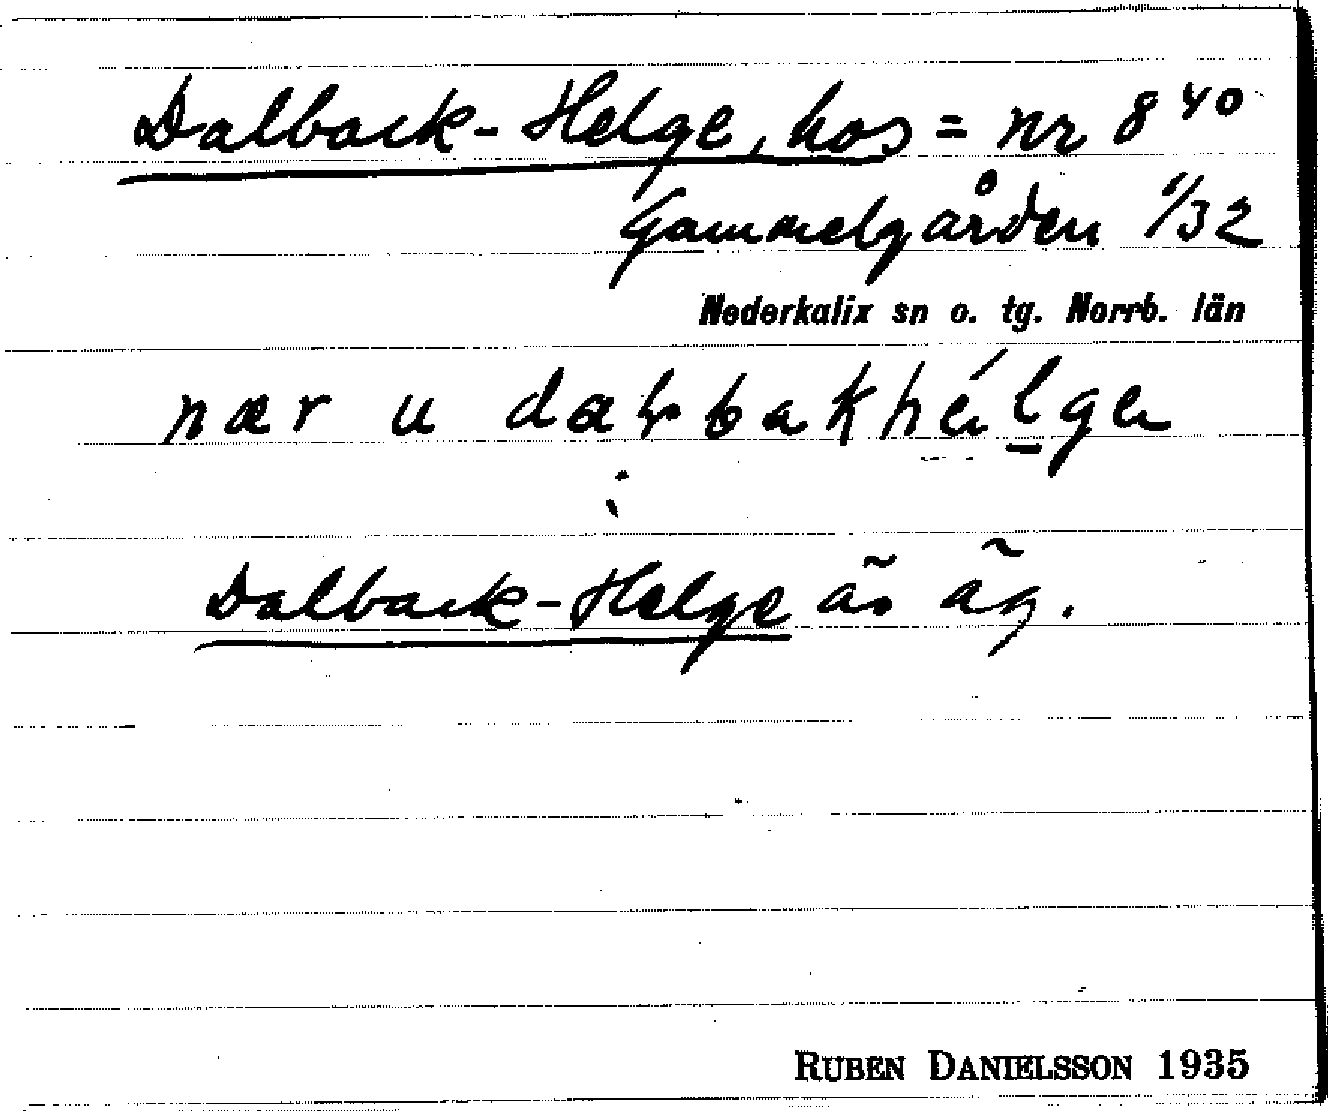 Dalback-Helge, hos = nr 8 40
Gammelgården 1/32
Nederkalix sn o. tg. Norrb. län
nær u
Dalback-Helge äg.
RUBEN DANIELSSON 1935